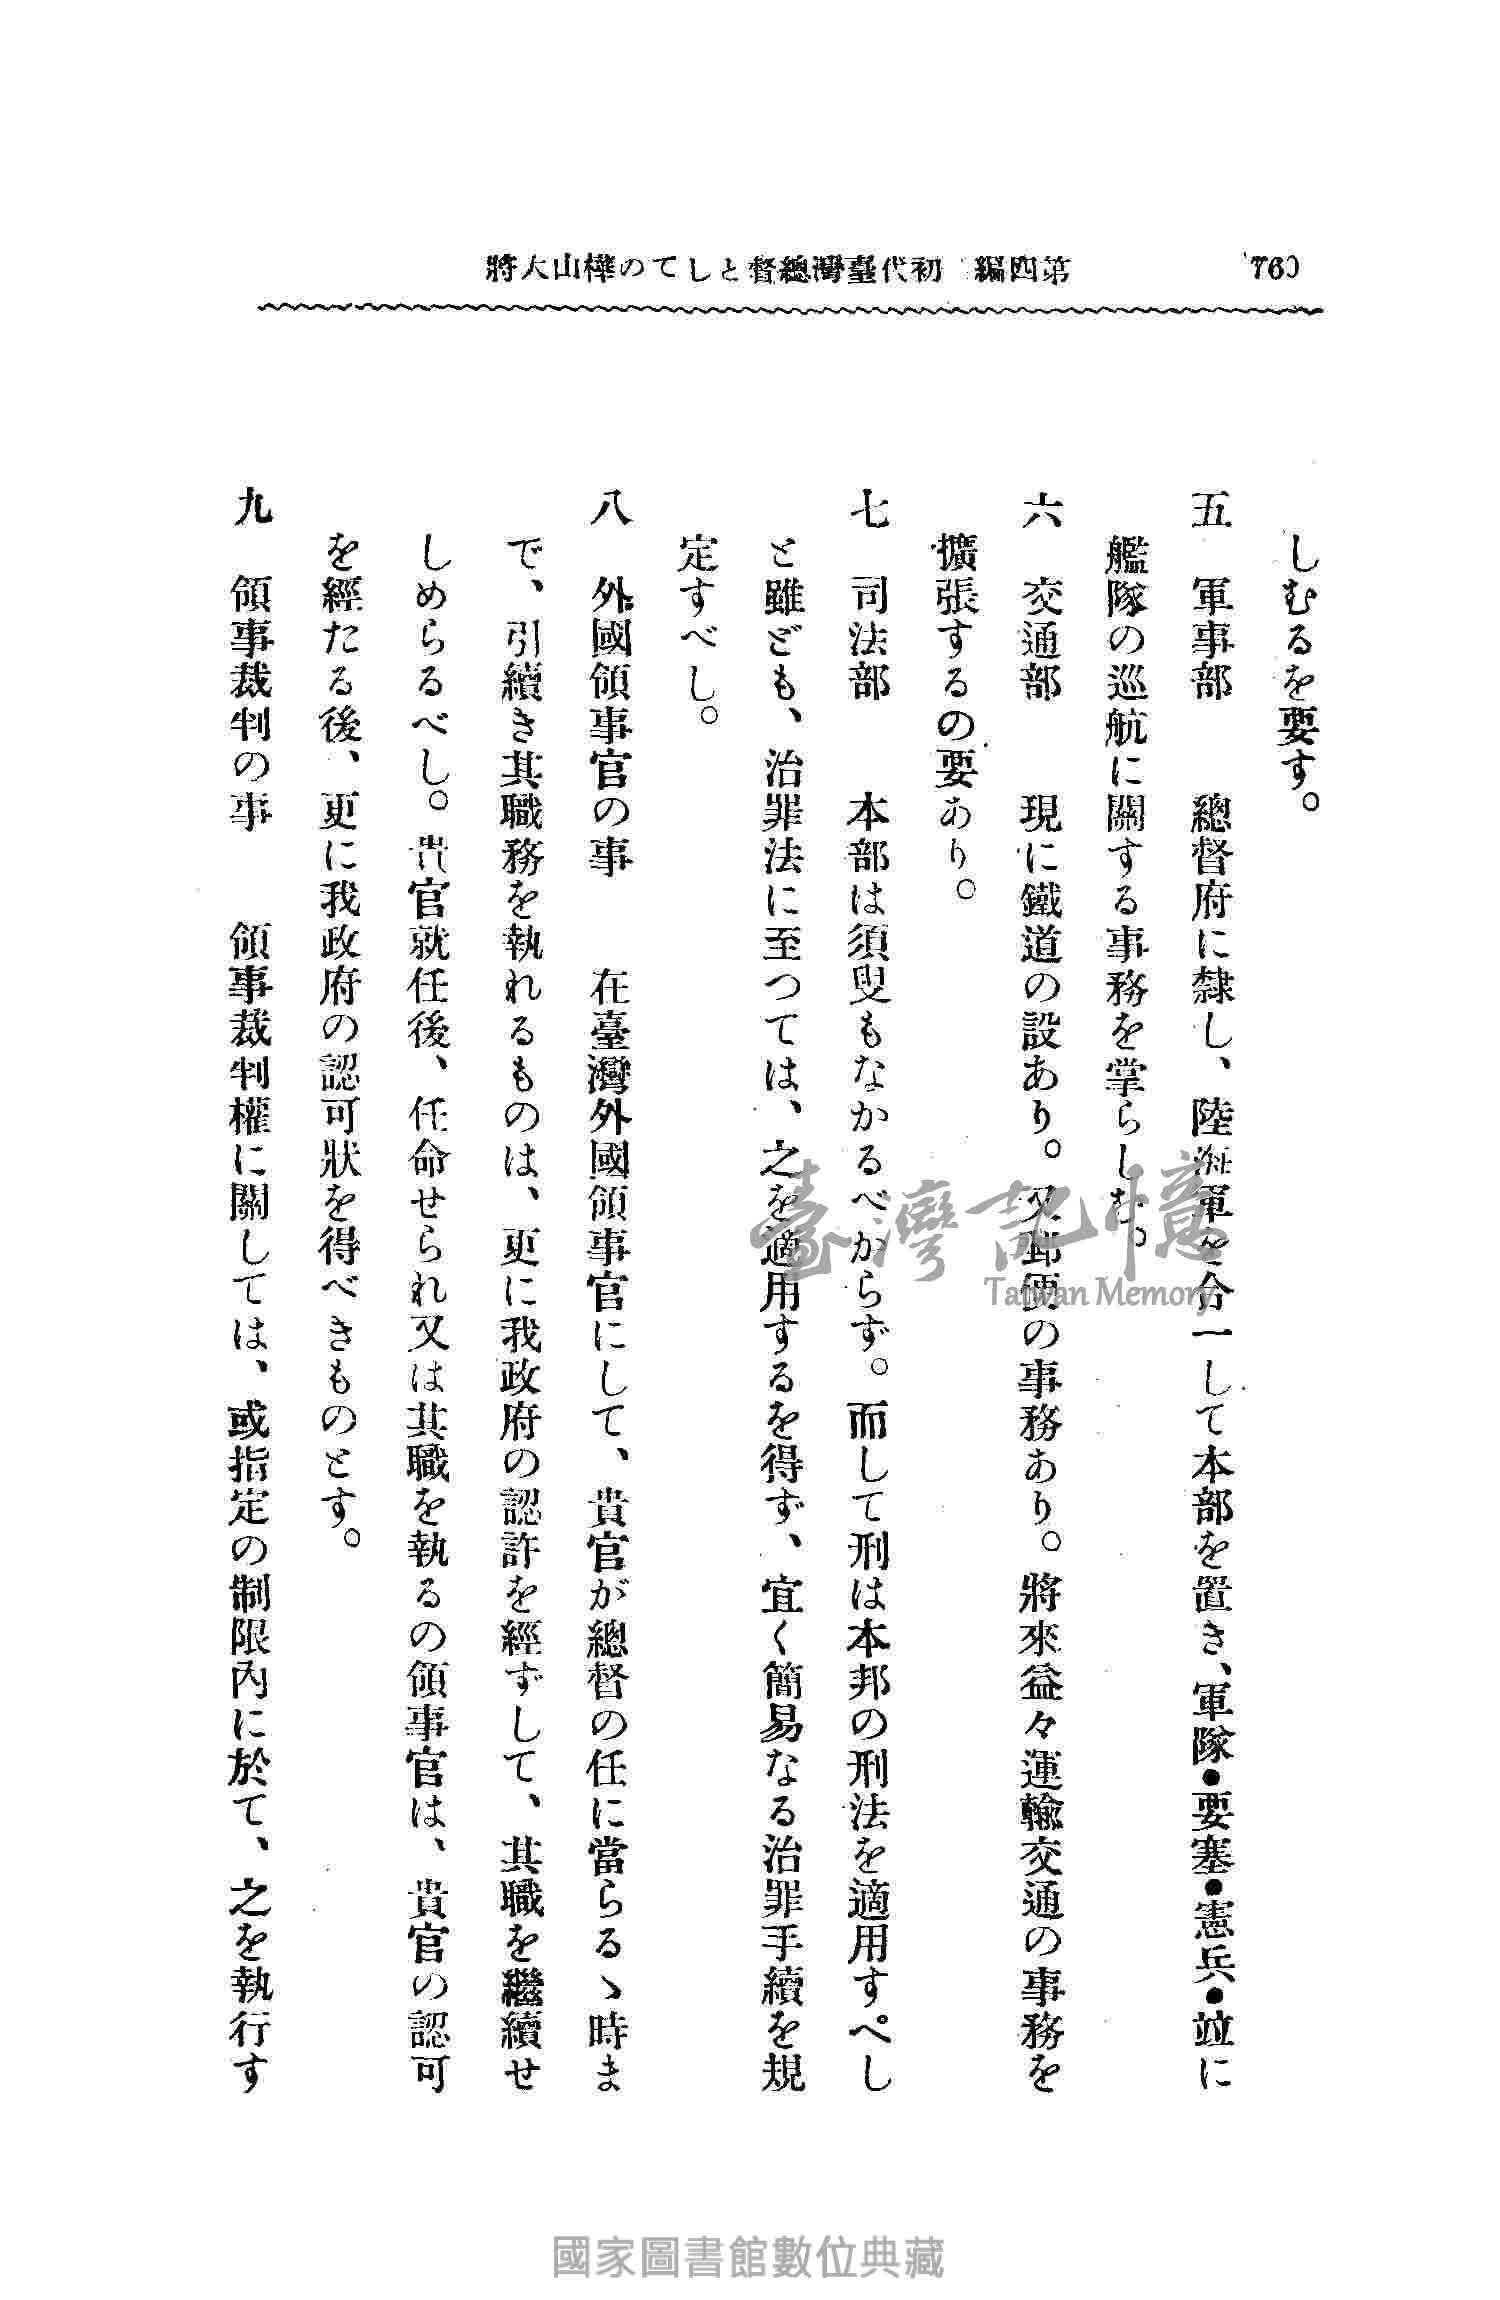 第四編 初代臺灣總督としての樺山大將
(76)
しむるを要す。
五 軍事部 總督府に隸し、陸海軍を合一して本部を置き、軍隊・要塞・憲兵・竝に
艦隊の巡航に關する事務を掌らしむ。
六 交通部 現に鐵道の設あり。又郵便の事務あり。將來益々運輸交通の事務を
擴張するの要あり。
七 司法部 本部は須臾もなかるべからず。而して刑は本邦の刑法を適用すべし
と雖ども、治罪法に至つては、之を適用するを得ず、宜く簡易なる治罪手續を規
定すべし。
八 外國領事官の事 在臺灣外國領事官にして、貴官が總督の任に當らるゝ時ま
で、引續き其職務を執れるものは、更に我政府の認許を經ずして、其職を繼續せ
しめらるべし。貴官就任後、任命せられ又は其職を執るの領事官は、貴官の認可
を經たる後、更に我政府の認可狀を得べきものとす。
九 領事裁判の事 領事裁判權に關しては、或指定の制限內に於て、之を執行す
臺灣記憶
Taiwan Memory
國家圖書館數位典藏